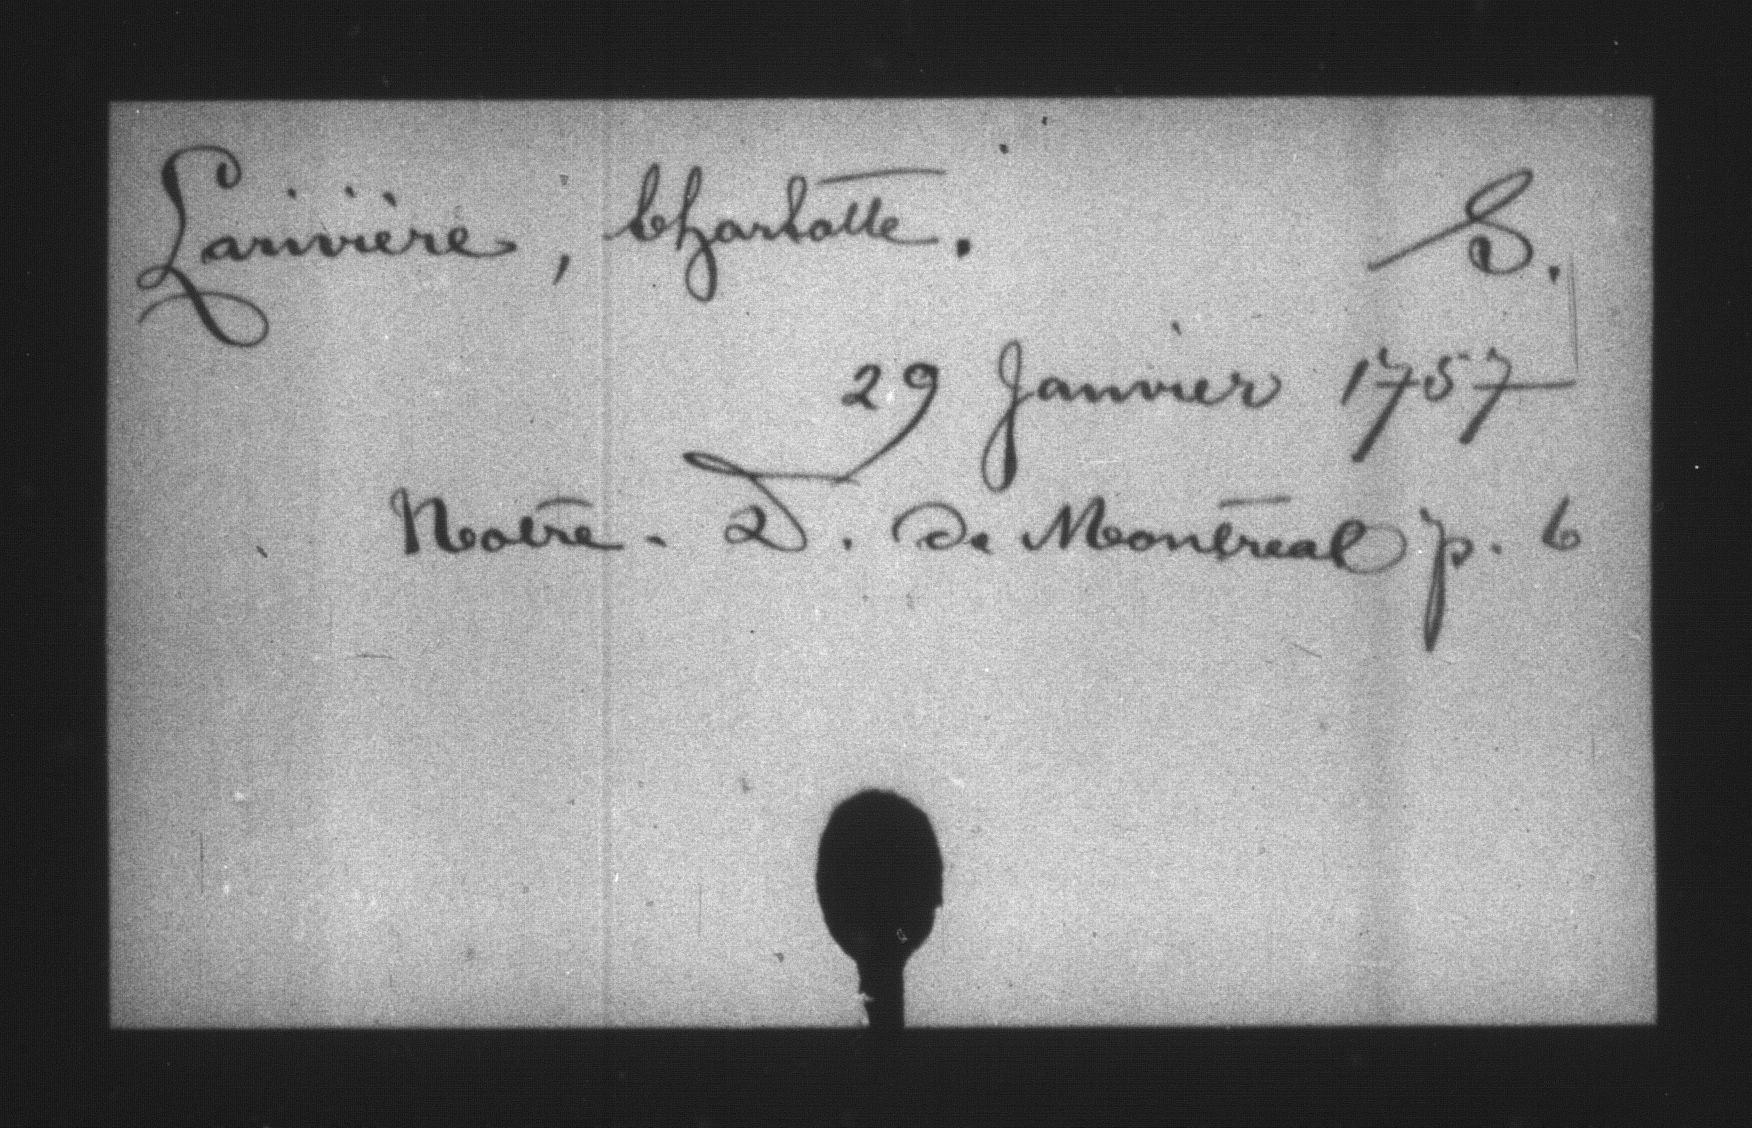 Larivière, Charlotte. S.
29 Janvier 1757
Notre-D. de Montreal p. 6